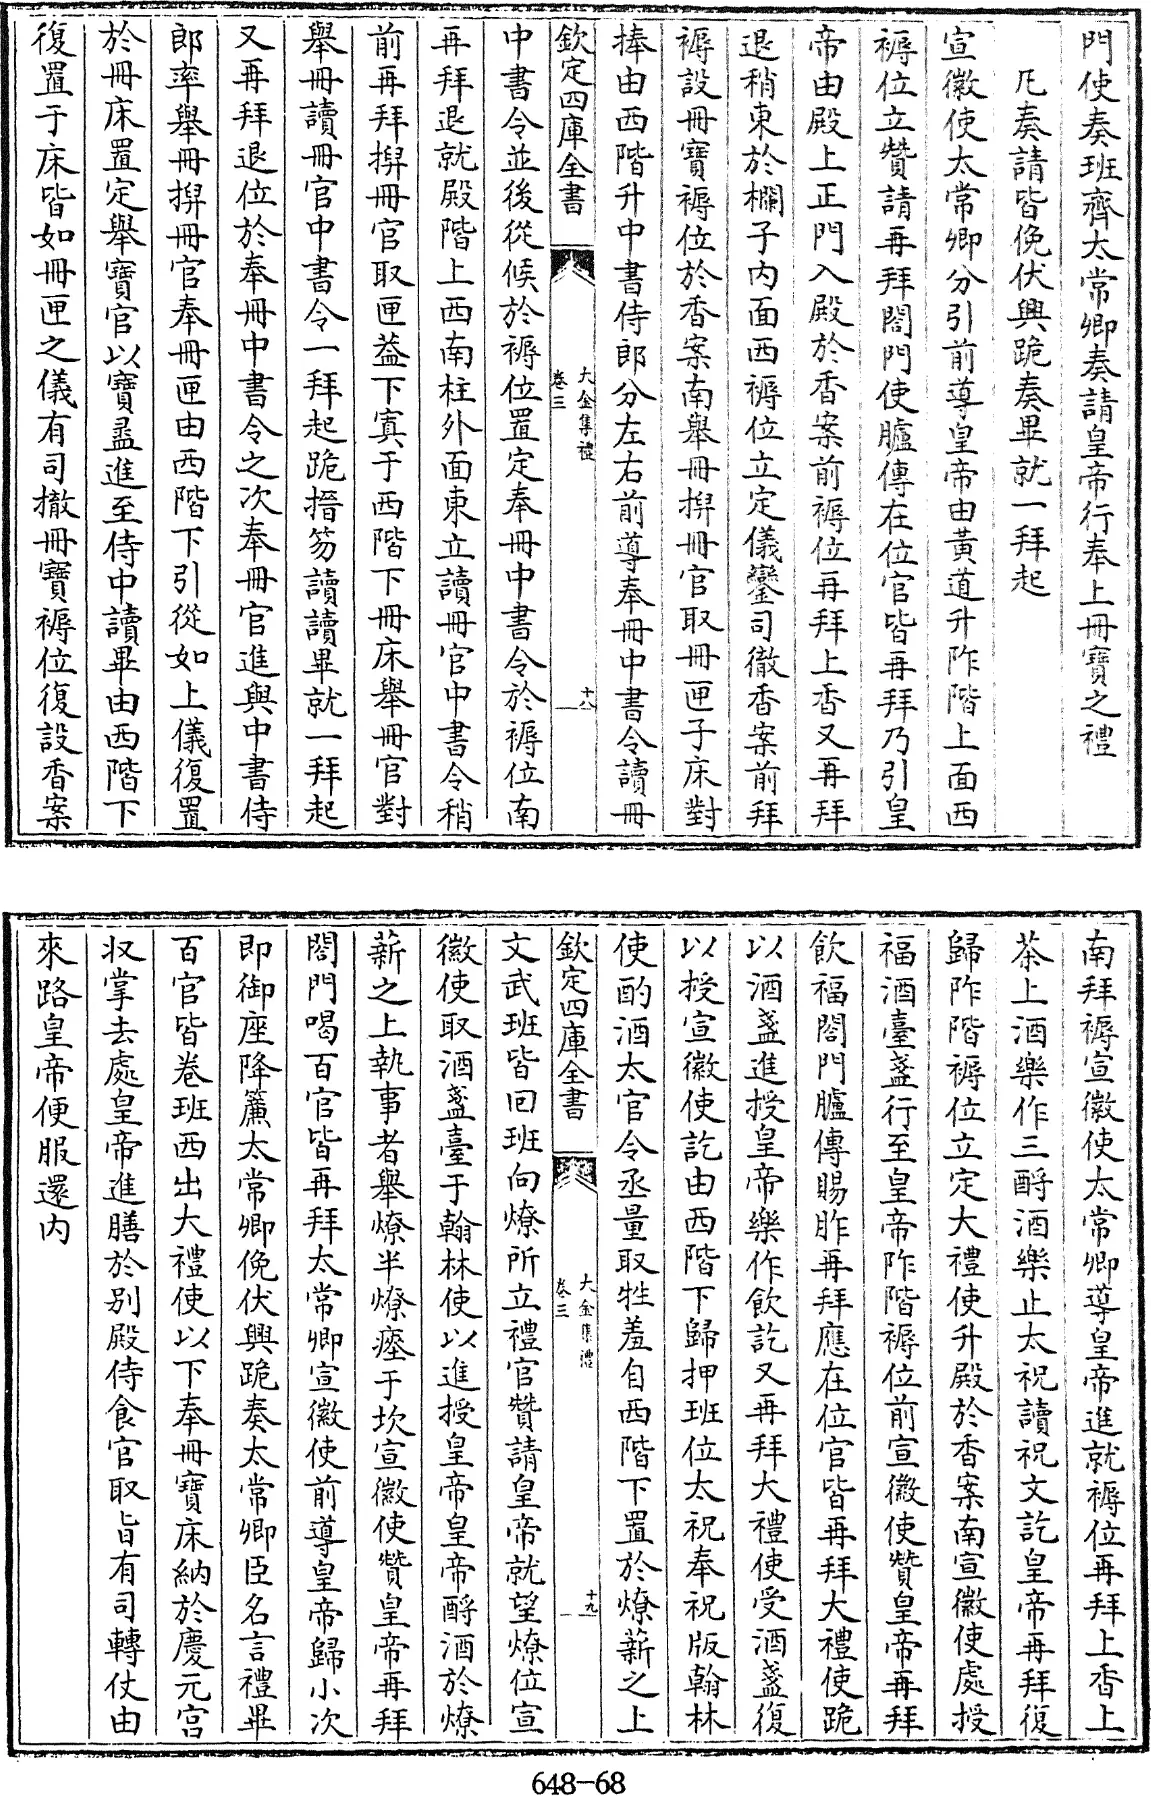 門使奏班齊太常卿奏請皇帝行奉上冊寶之禮
凡奏請皆俛伏興跪奏畢就一拜起
宣徽使太常卿分引前導皇帝由黃道升阼階上面西
褥位立贊請再拜閤門使臚傳在位官皆再拜乃引皇
帝由殿上正門入殿於香案前褥位再拜上香又再拜
退稍東於欄子內面西褥位立定儀鸞司徹香案前拜
褥設冊寶褥位於香案南舉冊捭冊官取冊匣子床對
捧由西階升中書侍郎分左右前導奉冊中書令讀冊
欽定四庫全書
大金集禮
卷三
十八
中書令並後從候於褥位置定奉冊中書令於褥位南
再拜退就殿階上西南柱外面東立讀冊官中書令稍
前再拜捭冊官取匣蓋下寘于西階下冊床舉冊官對
舉冊讀冊官中書令一拜起跪搢笏讀讀畢就一拜起
又再拜退位於奉冊中書令之次奉冊官進與中書侍
郎率舉冊捭冊官奉冊匣由西階下引從如上儀復置
於冊床置定舉寶官以寶盝進至侍中讀畢由西階下
復置于床皆如冊匣之儀有司撤冊寶褥位復設香案
南拜褥宣徽使太常卿導皇帝進就褥位再拜上香上
茶上酒樂作三酹酒樂止太祝讀祝文訖皇帝再拜復
歸阼階褥位立定大禮使升殿於香案南宣徽使處授
福酒臺盞行至皇帝阼階褥位前宣徽使贊皇帝再拜
飲福閤門臚傳賜胙再拜應在位官皆再拜大禮使跪
以酒盞進授皇帝樂作飲訖又再拜大禮使受酒盞復
以授宣徽使訖由西階下歸押班位太祝奉祝版翰林
使酌酒太官令丞量取牲羞自西階下置於燎薪之上
欽定四庫全書
大金集禮
卷三
十九
文武班皆回班向燎所立禮官贊請皇帝就望燎位宣
徽使取酒盞臺于翰林使以進授皇帝皇帝酹酒於燎
薪之上執事者舉燎半燎瘞于坎宣徽使贊皇帝再拜
閤門喝百官皆再拜太常卿宣徽使前導皇帝歸小次
即御座降簾太常卿俛伏興跪奏太常卿臣名言禮畢
百官皆卷班西出大禮使以下奉冊寶床納於慶元宮
収掌去處皇帝進膳於別殿侍食官取旨有司轉仗由
來路皇帝便服還內
648-68